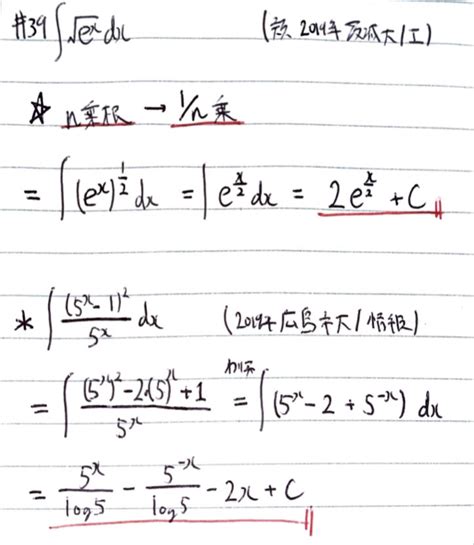 #39 ∫√e^x dx (2019年 筑波大/工)
☆ n乗根 → 1/n乗
= ∫(e^x)^(1/2) dx = ∫e^(x/2) dx = 2e^(x/2) + C
* ∫(5^x - 1)^2/5^x dx (2019年 広島市大/情報)
= ∫((5^x)^2 - 2(5)^x + 1)/5^x = ∫(5^x - 2 + 5^(-x)) dx
= 5^x/log5 - 5^(-x)/log5 - 2x + C